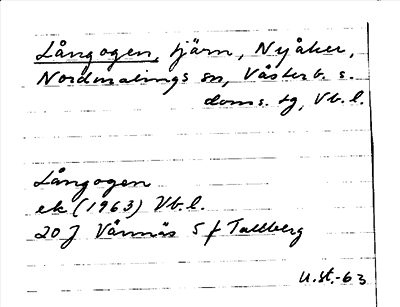 Långogen, tjärn, Nyåker,
Nordmalings sn, Västerb. s.
doms. tg, Vb. l.
Långogen
ek (1963) Vb. l.
20 J Vännäs 5 f Tallberg
U. st.-63